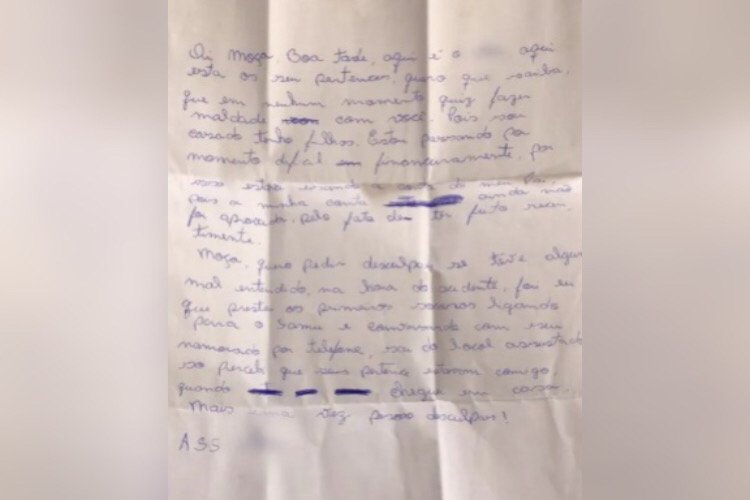 Oi, Moça, Boa tade, aqui é o aqui
esta os seu pertences, quero que saiba,
que em nenhum momento quiz fazer
maldade com você. Pois sou
casado tenho filhos. Estou passando por
momento difícil financeiramente, por
isso estava usando conta do meu
pois a minha conta ainda não
foi aprovada, pelo fato de ter feito recen
timente.
Moça, quero pedir desculpas se teve algum
mal entendido, na hora do acidente, foi eu
que prestei os primeiros socorros ligando
para o Samu e conversando com seu
namorado por telefone, sai do local assustado
so percebi que seus pertence estavam comigo
quando cheguei em casa.
Mais uma vez desculpas!
ASS